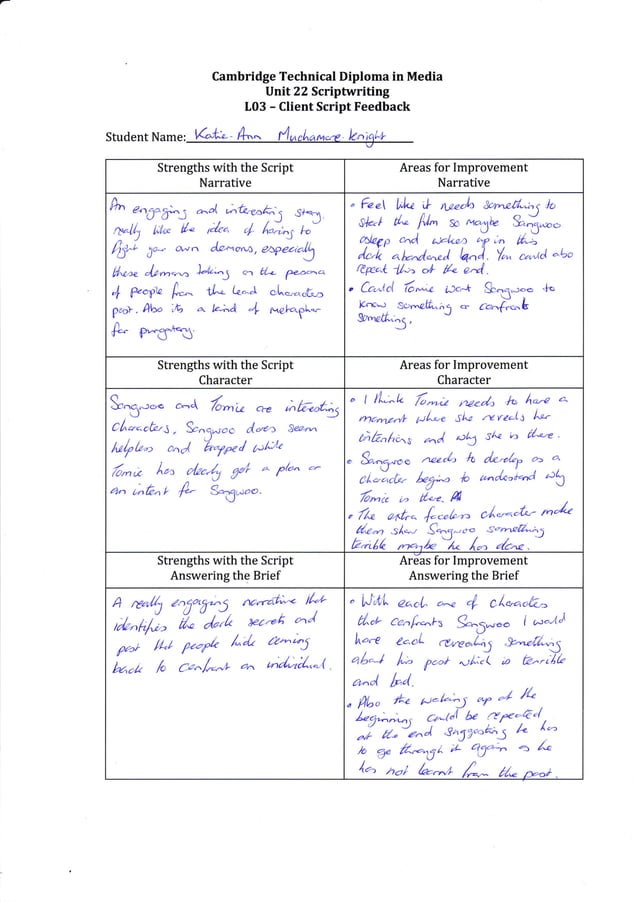 Cambridge Technical Diploma in Media
Unit 22 Scriptwriting
L03 – Client Script Feedback
Student Name: Katie-Ann Muchamore-Knight
Strengths with the Script
Narrative
An engaging and interesting story.
really like the idea of having to
fight your own demons, especially
these demons taking on the persona
of people from the lead characters
past. Also its a kind of metaphor
for purgatory.
Areas for Improvement
Narrative
• Feel like it needs something to
start the film so maybe Sangwoo
asleep and wakes up in this
dark abandoned land. You could also
repeat this at the end.
• Could Tomie want Sangwoo to
know something or confront
something.
Strengths with the Script
Character
Sangwoo and Tomie are interesting
characters, Sangwoo does seem
helpless and trapped while
Tomie has clearly got a plan or
an intent for Sangwoo.
Areas for Improvement
Character
• I think Tomie needs to have a
moment where she reveals her
intentions and why she is there.
• Sangwoo needs to develop as a
character begins to understand why
Tomie is there.
• The extra faceless character make
them show Sangwoo something
terrible maybe he has done.
Strengths with the Script
Answering the Brief
A really engaging narrative that
identifies the dark secrets and
past that people hide coming
back to confront an individual.
Areas for Improvement
Answering the Brief
• With each one of characters
that confronts Sangwoo I would
have each revealing something
about his past which is terrible
and bad.
• Also the waking up at the
beginning could be repeated
at the end suggesting he has
to go through it again as he
has not learnt from the past.